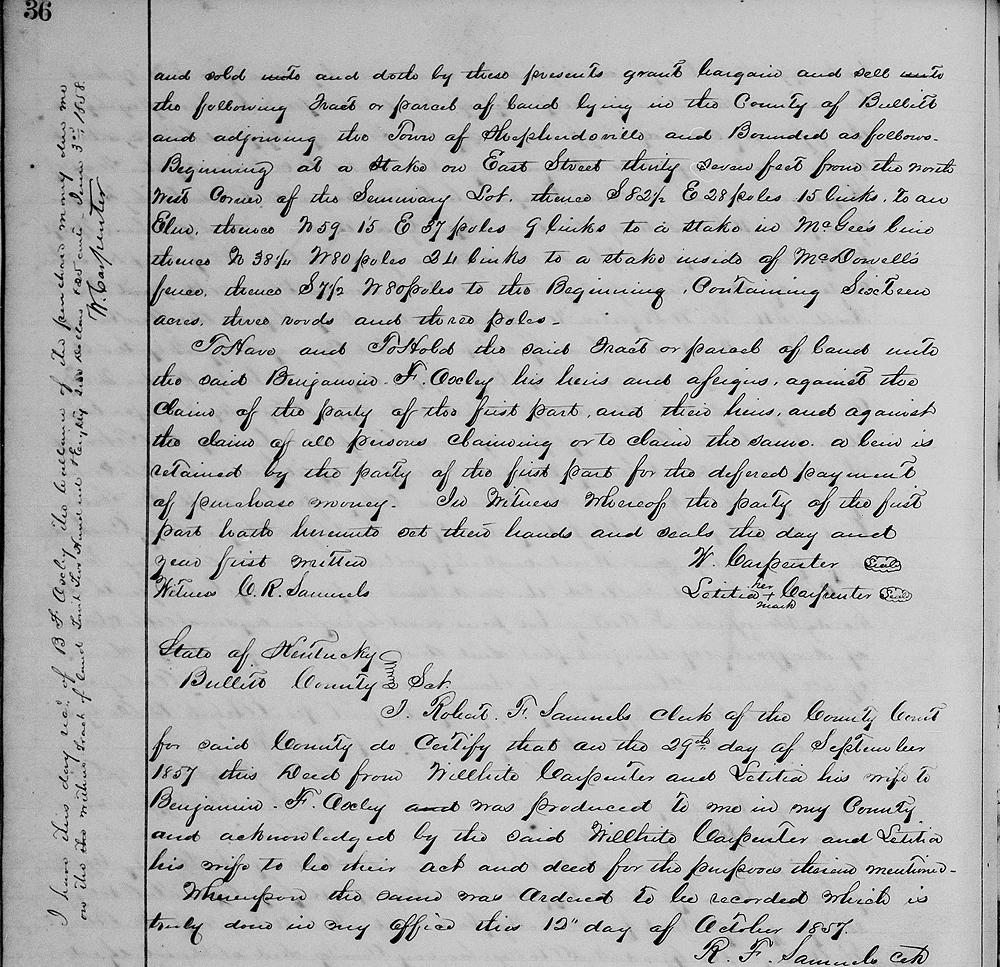 36
and sold unto and doth by these presents grant bargain and sell unto
the following Tract or parcel of land lying in the County of Bullitt
and adjoining the Town of Shepherdsville and Bounded as follows.
Beginning at a stake on East Street thirty seven feet from the north
West Corner of the Seminary Lot. thence S 82½ E 28 poles 15 links. to an
Elm. thence N 59 15 E 37 poles 9 links to a stake in McGee's line
thence N 38¼ W 80 poles 24 links to a stake inside of McDowell's
fence. thence S 7½ W 80 poles to the Beginning. Containing Sixteen
acres. three roods and three poles-
To Have and To Hold the said Tract or parcel of land unto
the said Benjamin. F. Oxley his heirs and assigns. against the
Claim of the party of the first part, and their heirs, and against
the claim of all persons Claiming or to Claim the same. a lien is
retained by the party of the first part for the deffered payment
of purchase money. In Witness Whereof the party of the first
part hath hereunto set their hands and seals the day and
year first written W. Carpenter Seal
Witness C. R. Samuels Letitia her + mark Carpenter Seal
State of Kentucky
Bullitt County Sct.
I. Robert. F. Samuels Clerk of the County Court
for said County do Certify that on the 29th day of September
1857 this Deed from Willhite Carpenter and Letitia his wife to
Benjamin. F. Oxley and was produced to me in my County.
and acknowledged by the said Willhite Carpenter and Letitia
his wife to be their act and deed for the purposes therein mentioned-
Whereupon the same was Ordered to be recorded which is
truly done in my office this 12" day of October 1857.
R. F. Samuels Clk
I have this day recd. of B. F. Oxley the ballance of the purchase money due me
on the within tract of land Hundred & Eighty Dollars cents June 3rd 1858.
W. Carpenter